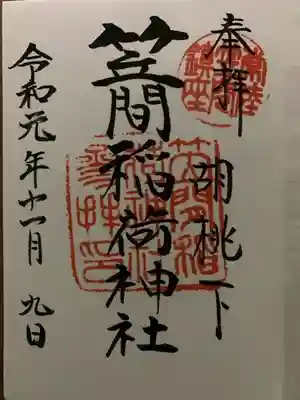 奉拝 胡桃下
笠間稲荷神社
令和元年十一月九日